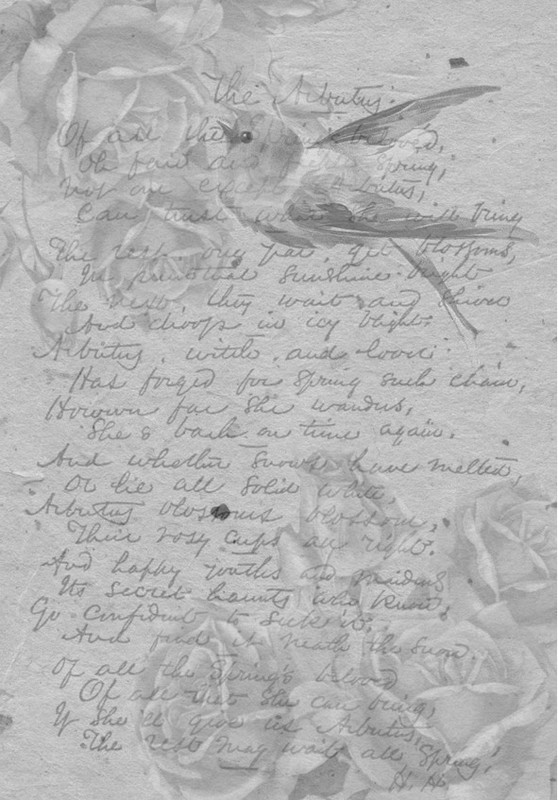 The Arbutus.
Of all the Spring's belov'd,
Oh fair and Spring,
Not one except Arbutus,
Can trust what she will bring
The rest, one year, get blossoms,
In sunshine bright
The next, they wait and shiver
And droop in icy blight.
Arbutus, witch and
Has forged for Spring such chain,
However far she wanders,
She's back on time again.
And whether snows have melted,
Or lie all solid white,
Arbutus blossoms blossom,
Their rosy cups all right.
And happy youths and maidens
Its secret haunts who know,
Go confident to seek it,
And find it neath the snow.
Of all the Spring's beloved
Of all that she can bring,
If she'll give us Arbutus,
The rest may wait all Spring,
H. H.